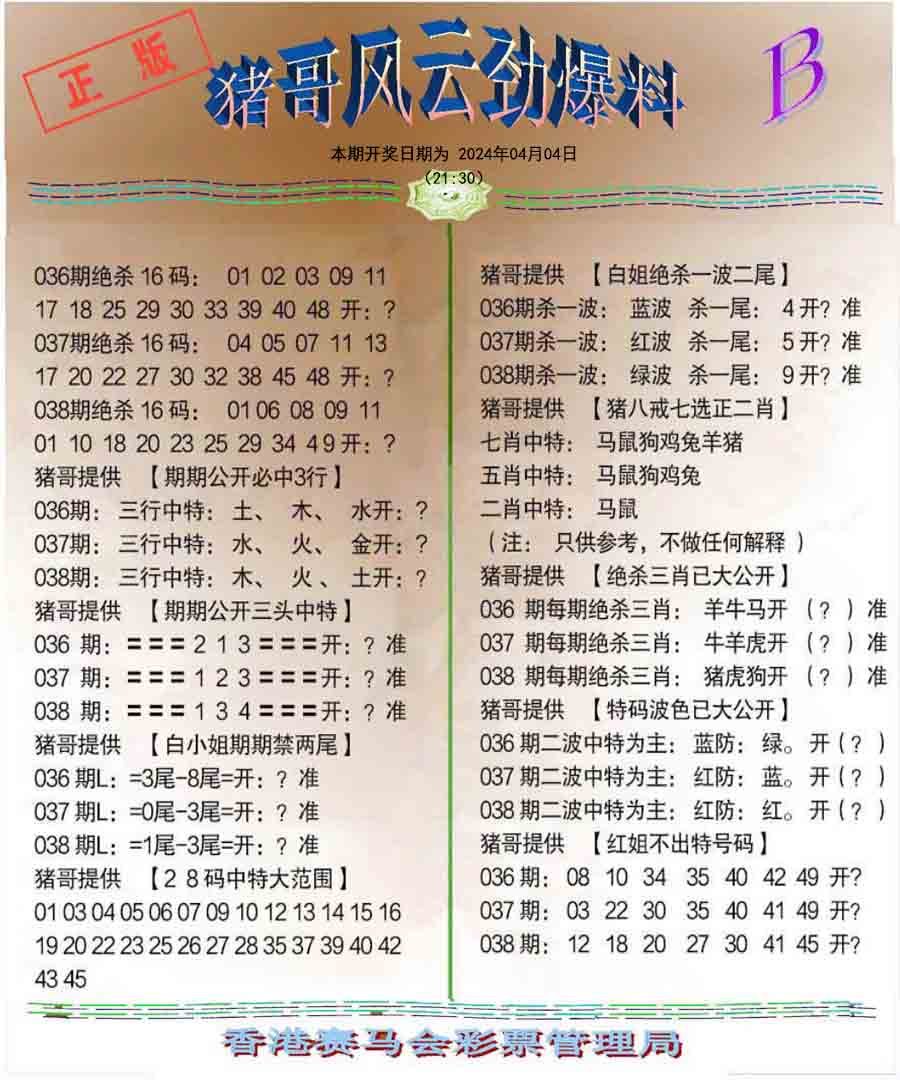 正版
猪哥风云劲爆料
B
本期开奖日期为 2024年04月04日
(21:30)
036期绝杀16码： 01 02 03 09 11
17 18 25 29 30 33 39 40 48 开：?
037期绝杀16码： 04 05 07 11 13
17 20 22 27 30 32 38 45 48 开：?
038期绝杀16码： 01 06 08 09 11
01 10 18 20 23 25 29 34 49 开：?
猪哥提供 【期期公开必中3行】
036期：三行中特：土、 木、 水开：?
037期：三行中特：水、 火、 金开：?
038期：三行中特：木、 火、 土开：?
猪哥提供 【期期公开三头中特】
036 期：===2 1 3===开：? 准
037 期：===1 2 3===开：? 准
038 期：===1 3 4===开：? 准
猪哥提供 【白小姐期期禁两尾】
036期L：=3尾-8尾=开：? 准
037期L：=0尾-3尾=开：? 准
038期L：=1尾-3尾=开：? 准
猪哥提供 【28码中特大范围】
01 03 04 05 06 07 09 10 12 13 14 15 16
19 20 22 23 25 26 27 28 35 37 39 40 42
43 45
猪哥提供 【白姐绝杀一波二尾】
036期杀一波： 蓝波 杀一尾： 4开? 准
037期杀一波： 红波 杀一尾： 5开? 准
038期杀一波： 绿波 杀一尾： 9开? 准
猪哥提供 【猪八戒七选正二肖】
七肖中特： 马鼠狗鸡兔羊猪
五肖中特： 马鼠狗鸡兔
二肖中特： 马鼠
(注： 只供参考，不做任何解释 )
猪哥提供 【绝杀三肖已大公开】
036 期每期绝杀三肖： 羊牛马开 （?）准
037 期每期绝杀三肖： 牛羊虎开 （?）准
038 期每期绝杀三肖： 猪虎狗开 （?）准
猪哥提供 【特码波色已大公开】
036期二波中特为主：蓝防：绿。开(?)
037期二波中特为主：红防：蓝。开(?)
038期二波中特为主：红防：红。开(?)
猪哥提供 【红姐不出特号码】
036期： 08 10 34 35 40 42 49 开?
037期： 03 22 30 35 40 41 49 开?
038期： 12 18 20 27 30 41 45 开?
香港赛马会彩票管理局